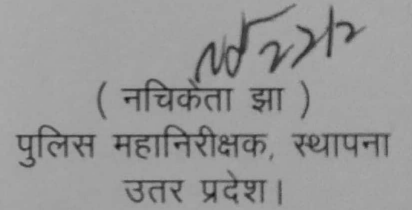 ( नचिकेता झा )
पुलिस महानिरीक्षक, स्थापना
उतर प्रदेश।